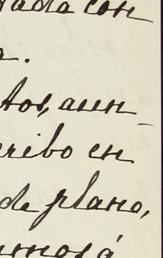 ada con
a.
tos, aun-
cribo en
de plano,
amos á